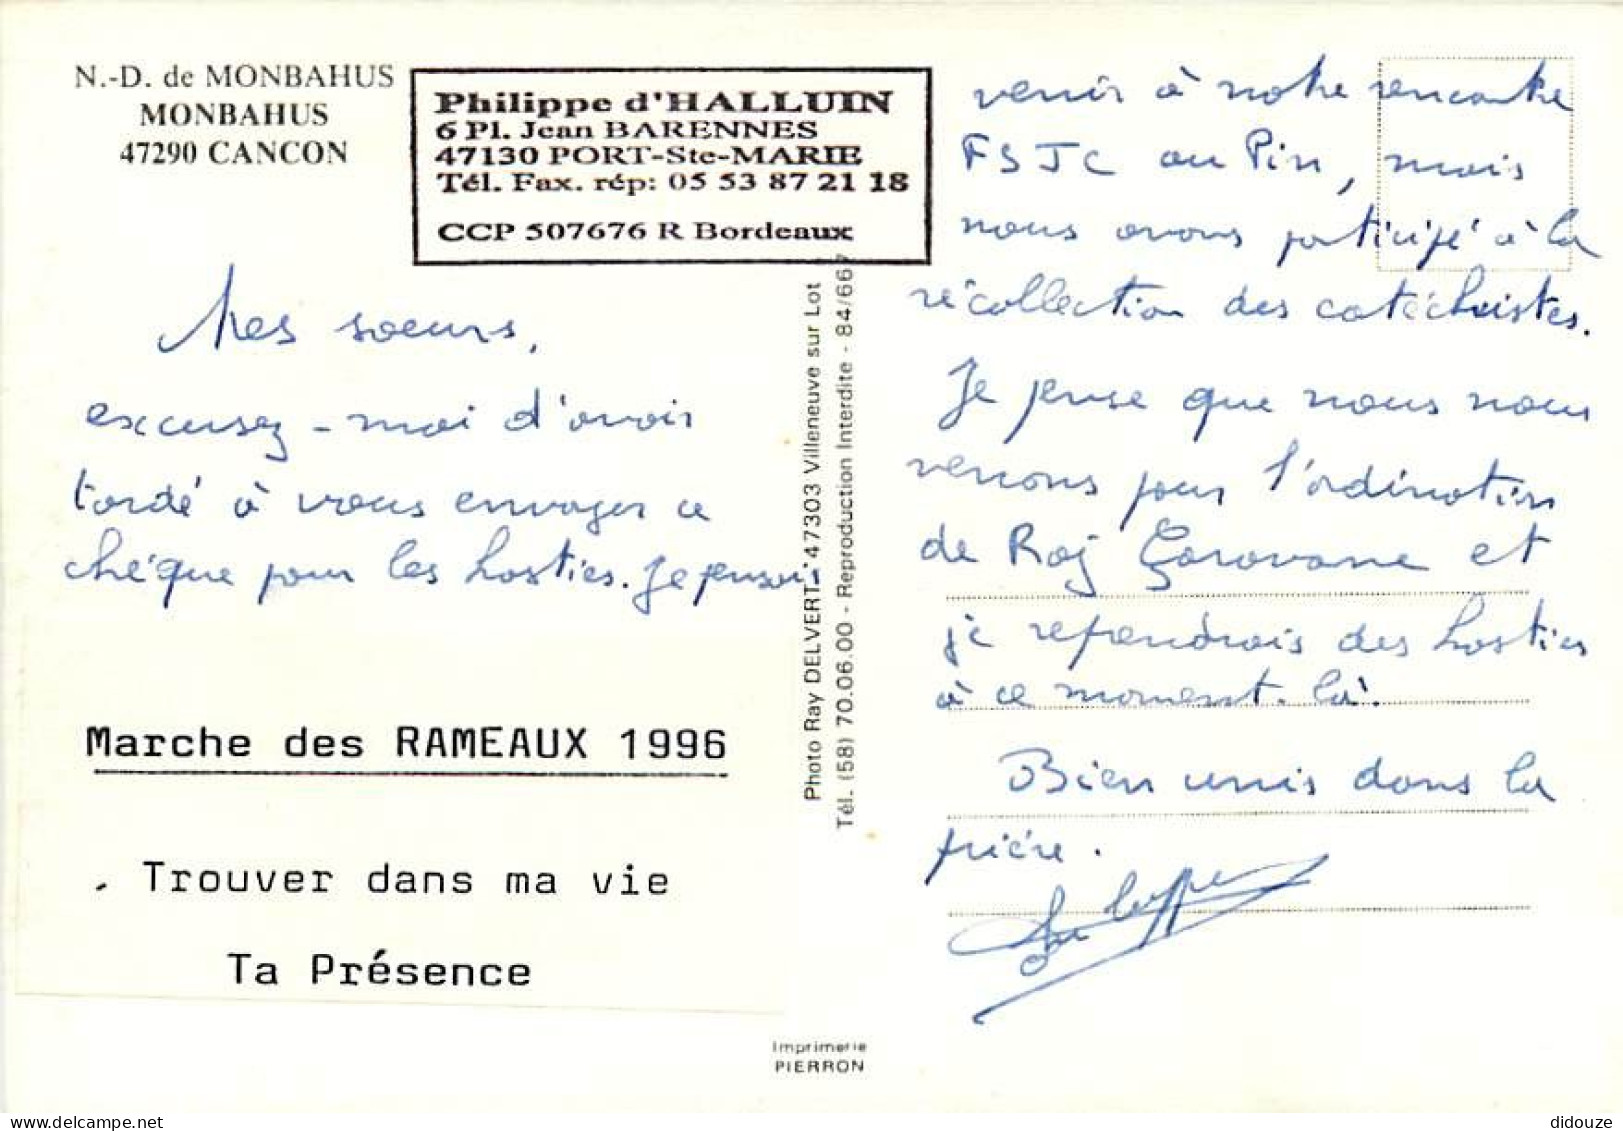 N.-D. de MONBAHUS
MONBAHUS
47290 CANCON
Philippe d'HALLUIN
6 Pl. Jean BARENNES
47130 PORT-Ste-MARIE
Tél. Fax. rép: 05 53 87 21 18
CCP 507676 R Bordeaux
Mes soeurs,
excusez-moi d'avoir
tardé à vous envoyer ce
chéque pour les hosties. Je pensais
Marche des RAMEAUX 1996
. Trouver dans ma vie
Ta Présence
Photo Ray DELVERT 47303 Villeneuve sur Lot
Tél. (58) 70.06.00 - Reproduction Interdite - 84/667
Imprimerie
PIERRON
venir à notre rencontre
FSJC au Pin, mais
nous avons participé à la
récollection des catéchistes.
Je pense que nous nous
verrons pour l'ordination
de Roj et
je reprendrais des hosties
à ce moment-là.
Bien unis dans la
prière.
Philippe
didouze / delcampe.net